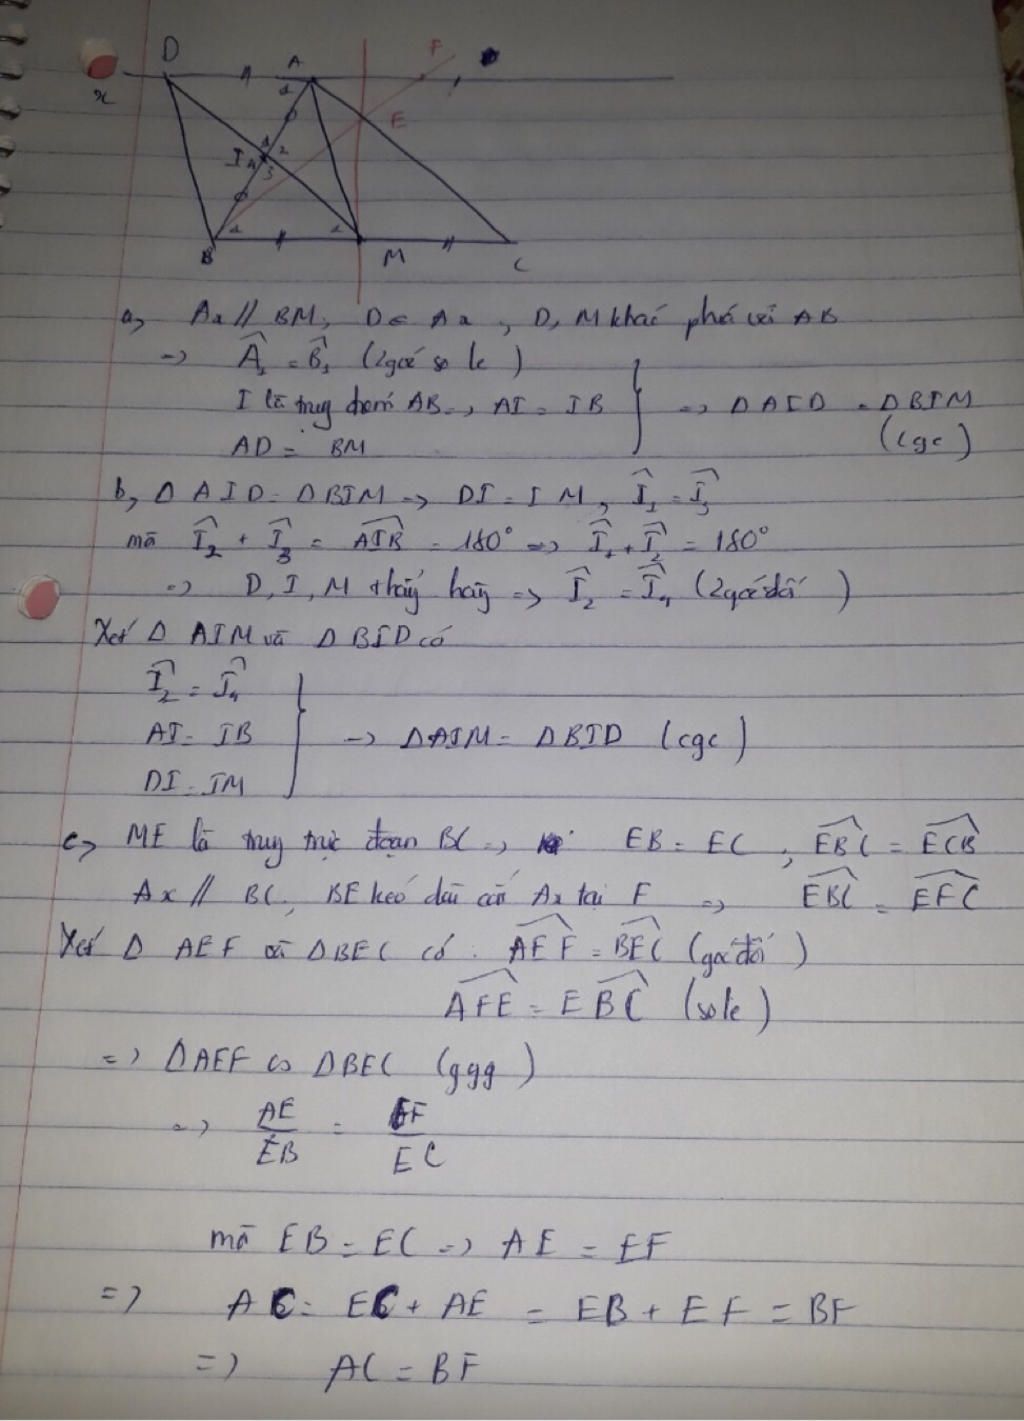 D A F
x E
I 1 2 3 4
B M C
a, Ax // BM, D ∈ Ax, D, M khác phía với AB
=> Â₁ = B̂₁ (2 góc so le)
I là trung điểm AB => AI = IB => Δ AID = Δ BIM
AD = BM (cgc)
b, Δ AID = Δ BIM => DI = IM, Î₁ = Î₃
mà Î₂ + Î₃ = AIB = 180° => Î₁ + Î₂ = 180°
=> D, I, M thẳng hàng => Î₂ = Î₄ (2 góc đối)
Xét Δ AIM và Δ BID có
Î₂ = Î₄
AI = IB => Δ AIM = Δ BID (cgc)
DI = IM
c, ME là trung trực đoạn BC => EB = EC, EBC = ECB
Ax // BC, BE kéo dài cắt Ax tại F => EBC = EFC
Xét Δ AEF và Δ BEC có: AEF = BEC (góc đối)
AFE = EBC (so le)
=> Δ AEF ∽ Δ BEC (ggg)
=> AE/EB = EF/EC
mà EB = EC => AE = EF
=> AC = EC + AE = EB + EF = BF
=> AC = BF